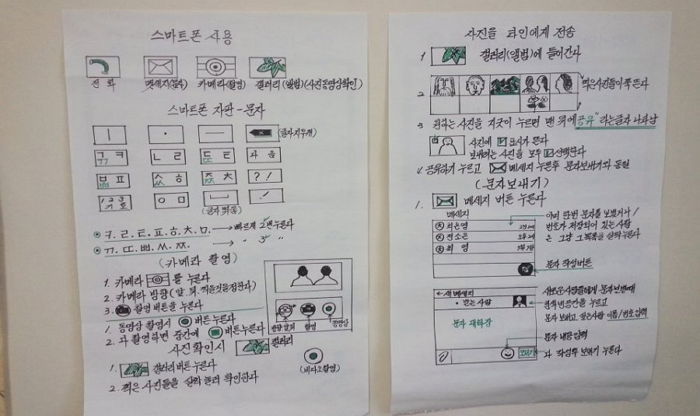 스마트폰 사용
전화 메세지(문자) 카메라(촬영) 갤러리(앨범)(사진동영상확인)
스마트폰 자판 - 문자
ㅣ · ㅡ (글자지우개)
ㄱㅋ ㄴㄹ ㄷㅌ
ㅂㅍ ㅅㅎ ㅈㅊ ?!
ㅇㅁ
(글자띄움)
ㅋ. ㄹ. ㅌ. ㅍ. ㅎ. ㅊ. ㅁ. → 빠르게 2번누른다
ㄲ. ㄸ. ㅃ. ㅆ. ㅉ. → " 3 "
(카메라 촬영)
1. 카메라 를 누른다
2. 카메라 방향(앞.뒤.
3. 촬영 버튼을 누른다
1. 동영상 촬영시 버튼누른다
2. 촬영하면 중간에 버튼누른다
사진확인시 갤러리
1. 갤러리버튼누른다
2. 찍은사진들을 확인한다
촬영 동영상
사진을 타인에게 전송
1 갤러리(앨범)에 들어간다
2 찍은사진들이 쭉 뜬다
3 원하는 사진을 지긋이 누르면 맨 위에 "공유" 라는글자 나타남
사진에 표시가 뜬다
보내려는 사진을 모두 선택한다
4 공유하기 누르고 메세지 누른후 문자보내기와 동일
(문자보내기)
1. 메세지 버튼 누른다
메세지
이미 한번 문자를 보냈거나/
번호가 저장되어 있는 사람
은 그냥 그쪽을 살짝누른다
문자 작성버튼
새메세지
받는사람
문자 보내고 싶은사람 이름/번호입력
문자 내용입력
다 작성후 보내기 누른다